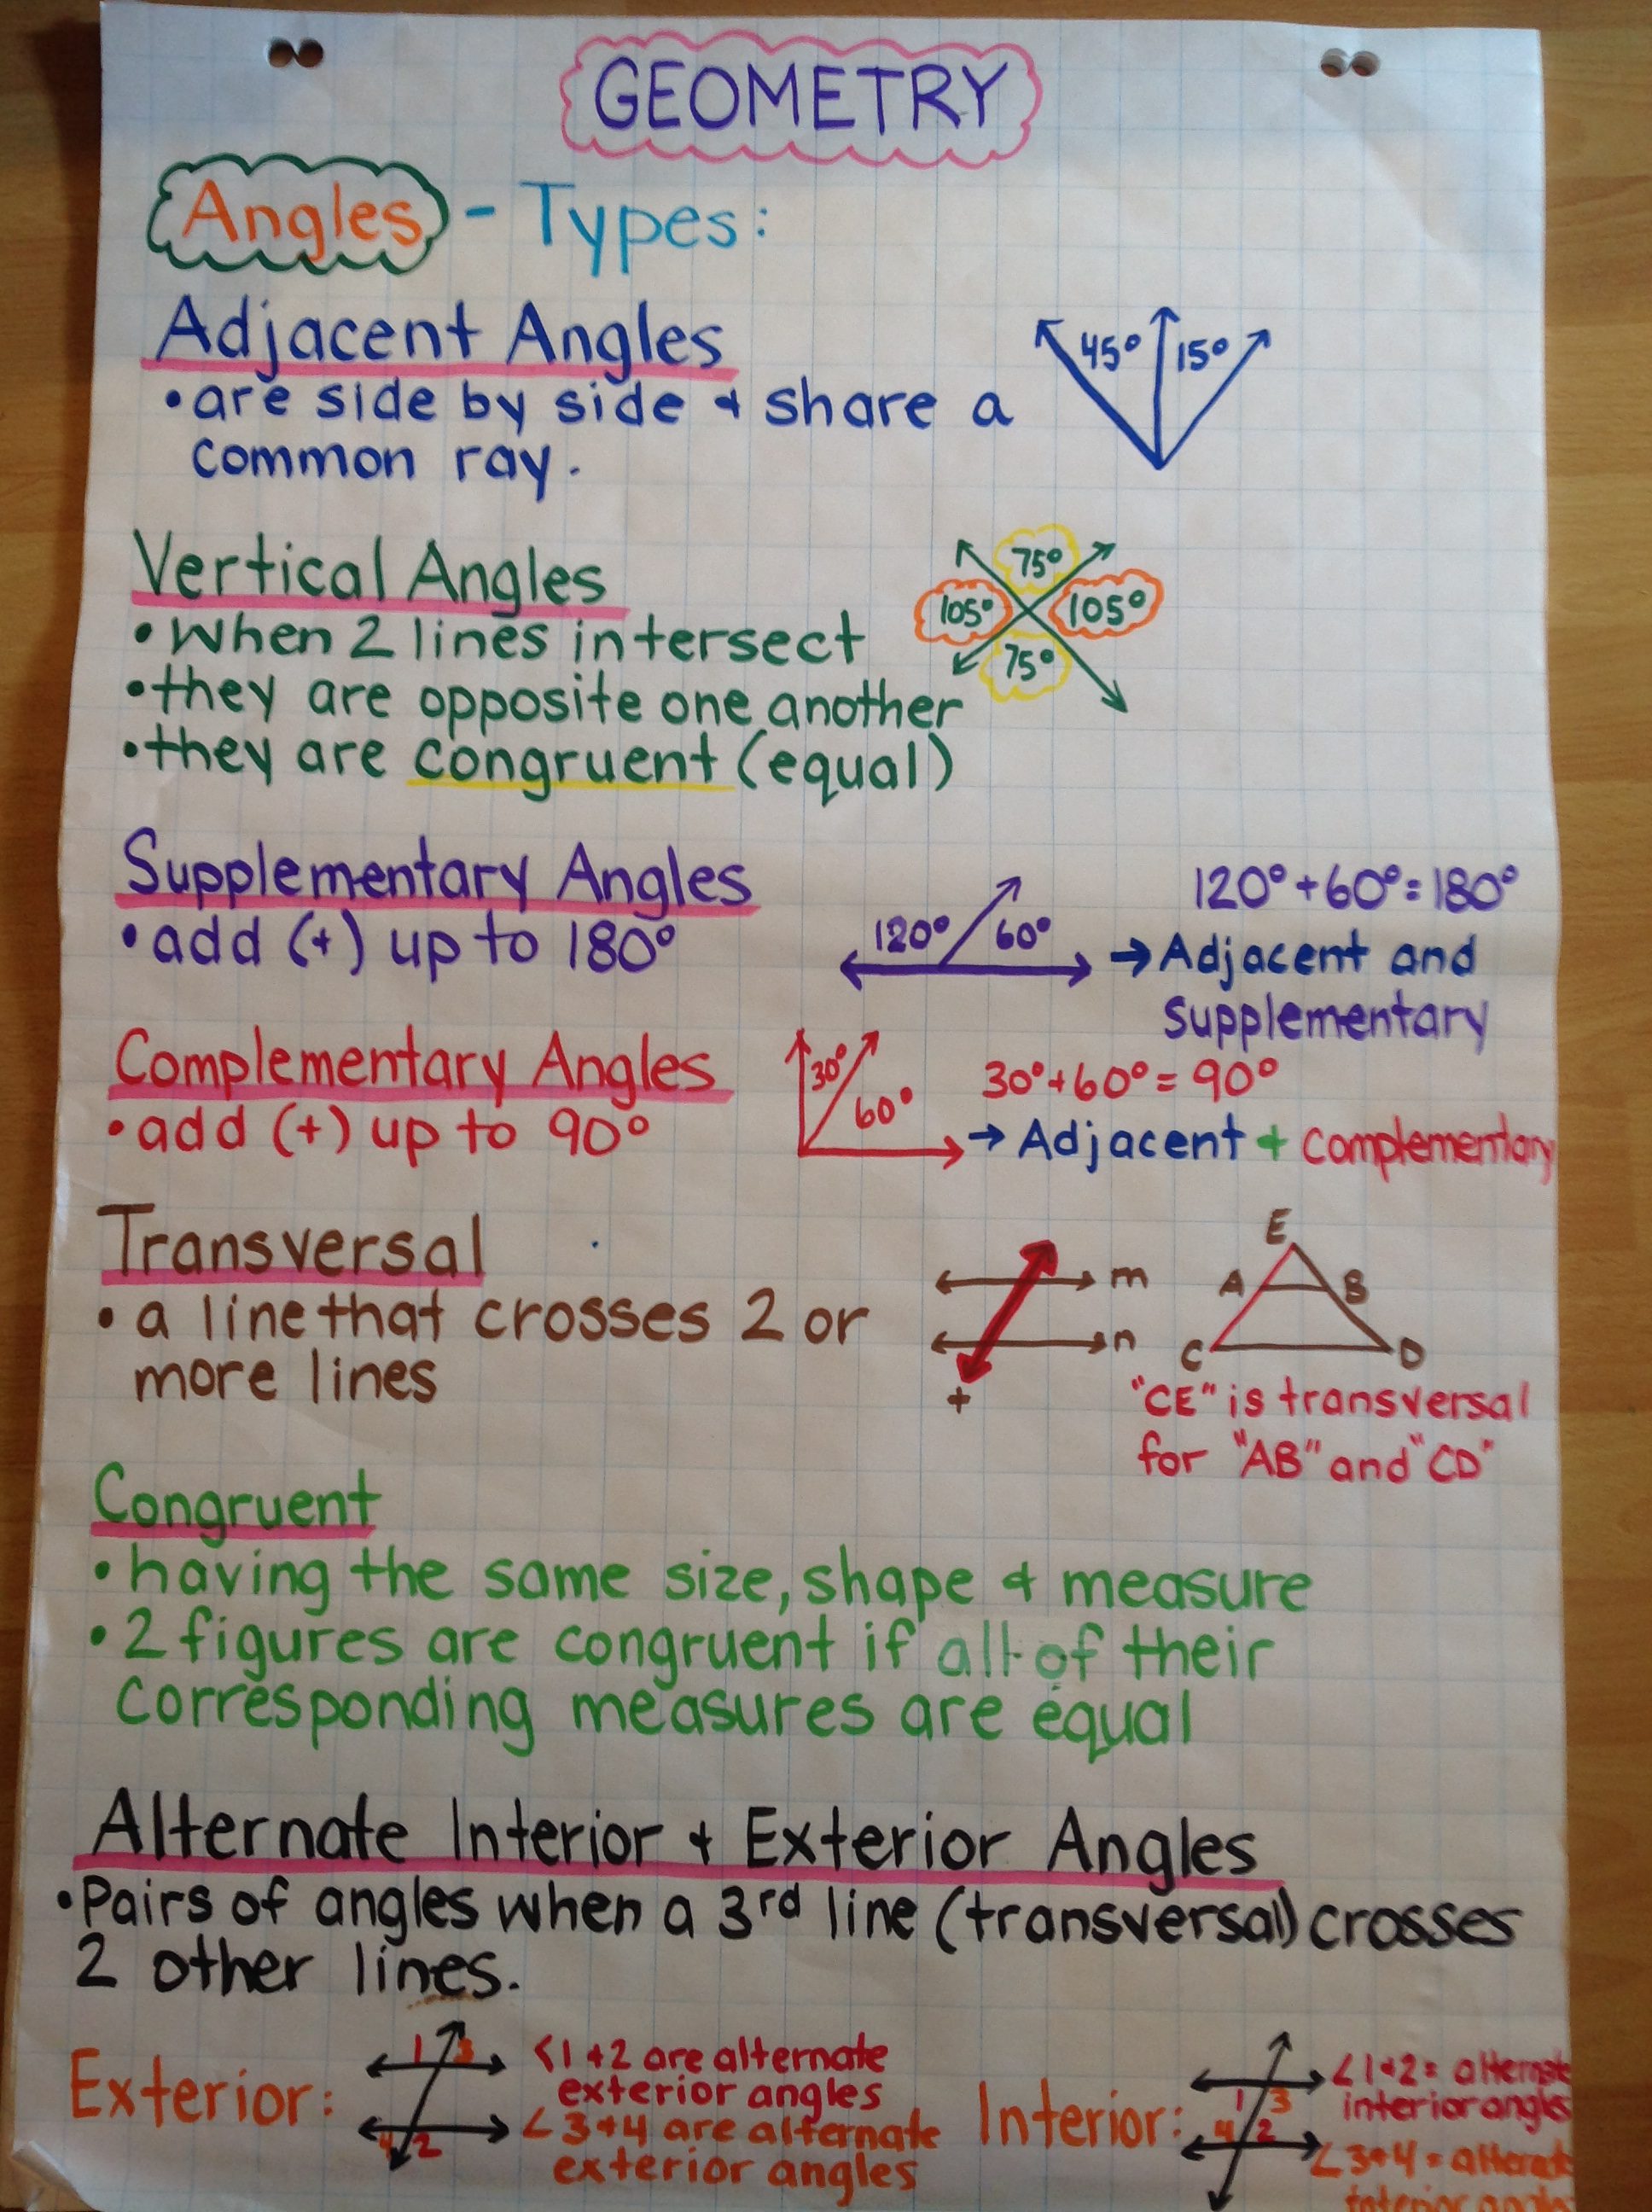 GEOMETRY
Angles - Types:
Adjacent Angles
• are side by side & share a
common ray.
45° 15°
Vertical Angles
• When 2 lines intersect
• they are opposite one another
• they are congruent (equal)
75°
105° 105°
75°
Supplementary Angles
• add (+) up to 180°
120° 60°
120° + 60° = 180°
→ Adjacent and
Supplementary
Complementary Angles
• add (+) up to 90°
30°
60°
30° + 60° = 90°
→ Adjacent + Complementary
Transversal
• a line that crosses 2 or
more lines
m
n
t
E
A B
C D
"CE" is transversal
for "AB" and "CD"
Congruent
• having the same size, shape & measure
• 2 figures are congruent if all of their
corresponding measures are equal
Alternate Interior & Exterior Angles
• Pairs of angles when a 3rd line (transversal) crosses
2 other lines.
Exterior:
1 3
4 2
∠1 + 2 are alternate
exterior angles
∠3 + 4 are alternate
exterior angles
Interior:
1 3
4 2
∠1 + 2 = alternate
interior angles
∠3 + 4 = alternate
interior angles